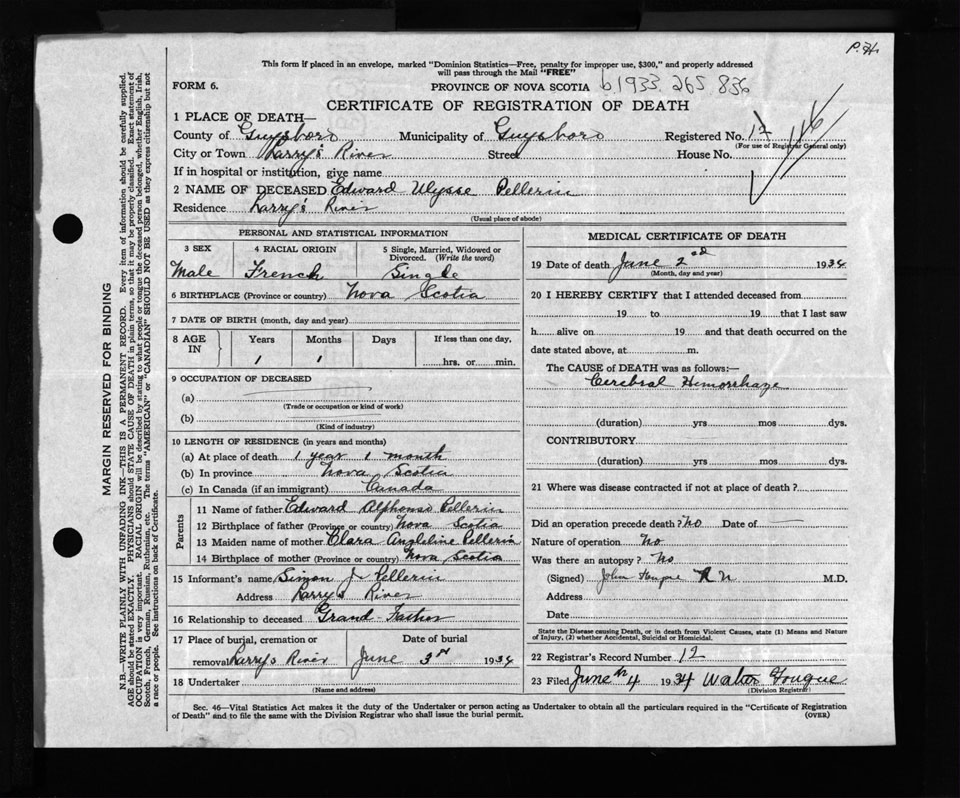 P. H.
This form if placed in an envelope, marked "Dominion Statistics—Free, penalty for improper use, $300," and properly addressed
will pass through the Mail "FREE"
FORM 6.
PROVINCE OF NOVA SCOTIA b1933. 265 836
CERTIFICATE OF REGISTRATION OF DEATH
1 PLACE OF DEATH—
County of Guysboro Municipality of Guysboro Registered No. 12
(For use of Registrar General only)
City or Town Larry's River Street House No.
If in hospital or institution, give name
2 NAME OF DECEASED Edward Ulysse Pellerin
Residence Larry's River
(Usual place of abode)
PERSONAL AND STATISTICAL INFORMATION
3 SEX 4 RACIAL ORIGIN 5 Single, Married, Widowed or
Divorced. (Write the word)
Male French Single
6 BIRTHPLACE (Province or country) Nova Scotia
7 DATE OF BIRTH (month, day and year)
8 AGE IN Years Months Days If less than one day,
1 1 hrs. or min.
9 OCCUPATION OF DECEASED
(a)
(Trade or occupation or kind of work)
(b)
(Kind of industry)
10 LENGTH OF RESIDENCE (in years and months)
(a) At place of death 1 year 1 month
(b) In province Nova Scotia
(c) In Canada (if an immigrant) Canada
Parents
11 Name of father Edward Alphonso Pellerin
12 Birthplace of father (Province or country) Nova Scotia
13 Maiden name of mother Clara Angleline Pellerin
14 Birthplace of mother (Province or country) Nova Scotia
15 Informant's name Simon J Pellerin
Address Larry's River
16 Relationship to deceased Grand Father
17 Place of burial, cremation or Date of burial
removal Larry's River June 3rd 1934
18 Undertaker
(Name and address)
MEDICAL CERTIFICATE OF DEATH
19 Date of death June 2nd 1934
(Month, day and year)
20 I HEREBY CERTIFY that I attended deceased from
19 to 19 that I last saw
h alive on 19 and that death occurred on the
date stated above, at m.
The CAUSE of DEATH was as follows:—
Cerebral Hemorrhage
(duration) yrs mos dys.
CONTRIBUTORY
(duration) yrs mos dys.
21 Where was disease contracted if not at place of death?
Did an operation precede death? No Date of —
Nature of operation No
Was there an autopsy? No
(Signed) John R N M.D.
Address
Date
State the Disease causing Death, or in death from Violent Causes, state (1) Means and Nature
of Injury, (2) whether Accidental, Suicidal or Homicidal.
22 Registrar's Record Number 12
23 Filed June 4th 1934 Walter Fougue
(Division Registrar)
Sec. 46—Vital Statistics Act makes it the duty of the Undertaker or person acting as Undertaker to obtain all the particulars required in the "Certificate of Registration
of Death" and to file the same with the Division Registrar who shall issue the burial permit. (OVER)
MARGIN RESERVED FOR BINDING
N.B.—WRITE PLAINLY WITH UNFADING INK—THIS IS A PERMANENT RECORD. Every item of information should be carefully supplied.
AGE should be stated EXACTLY. PHYSICIANS should STATE CAUSE OF DEATH in plain terms, so that it may be properly classified. Exact statement of
OCCUPATION is very important. RACIAL ORIGIN will be described by stating to what people or tongue the deceased person belonged, whether English, Irish,
Scotch, French, German, Russian, Ruthenian, etc. The terms "AMERICAN" or "CANADIAN" SHOULD NOT BE USED as they express citizenship but not
a race or people. See instructions on back of Certificate.